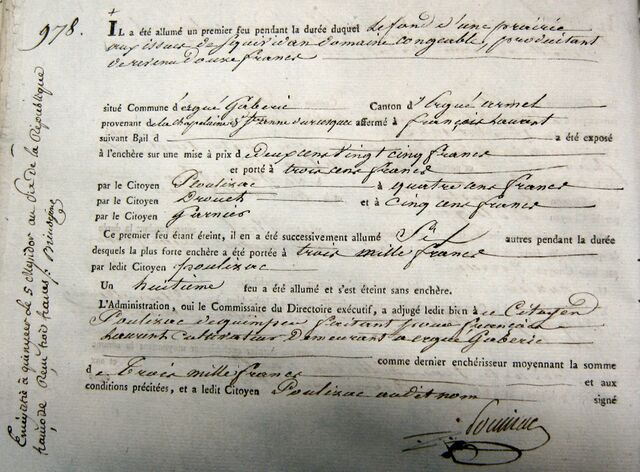 978.
IL a été allumé un premier feu pendant la durée duquel le fond d'une prairie
aux issues de squividan domaine congeable, produisant
de revenu douze francs
situé Commune d'ergué Gaberic Canton d'Ergué armel
provenant de la Chapelainie St. anne du affermé à françois Laurent
suivant Bail d a été exposé
à l'enchère sur une mise à prix de deux cent vingt cinq francs
et porté à trois cens francs
par le Citoyen Poulizac à quatre cens francs
par le Citoyen Drouet et à cinq cens francs
par le Citoyen Garnier
Ce premier feu étant éteint, il en a été successivement allumé Six autres pendant la durée
desquels la plus forte enchère a été portée à trois mille francs
par ledit Citoyen poulizac
Un huitieme feu a été allumé et s'est éteint sans enchère.
L'Administration, oui le Commissaire du Directoire exécutif, a adjugé ledit bien à ce Citoyen
Poulizac de quimper faisant pour françois
Laurent cultivateur demeurant a ergué Gaberic
comme dernier enchérisseur moyennant la somme
de Trois mille francs et aux
conditions précitées, et a ledit Citoyen Poulizac audit nom signé
Poulizac
Enregistré à quimper le 5 Messidor an Six de la République
francs